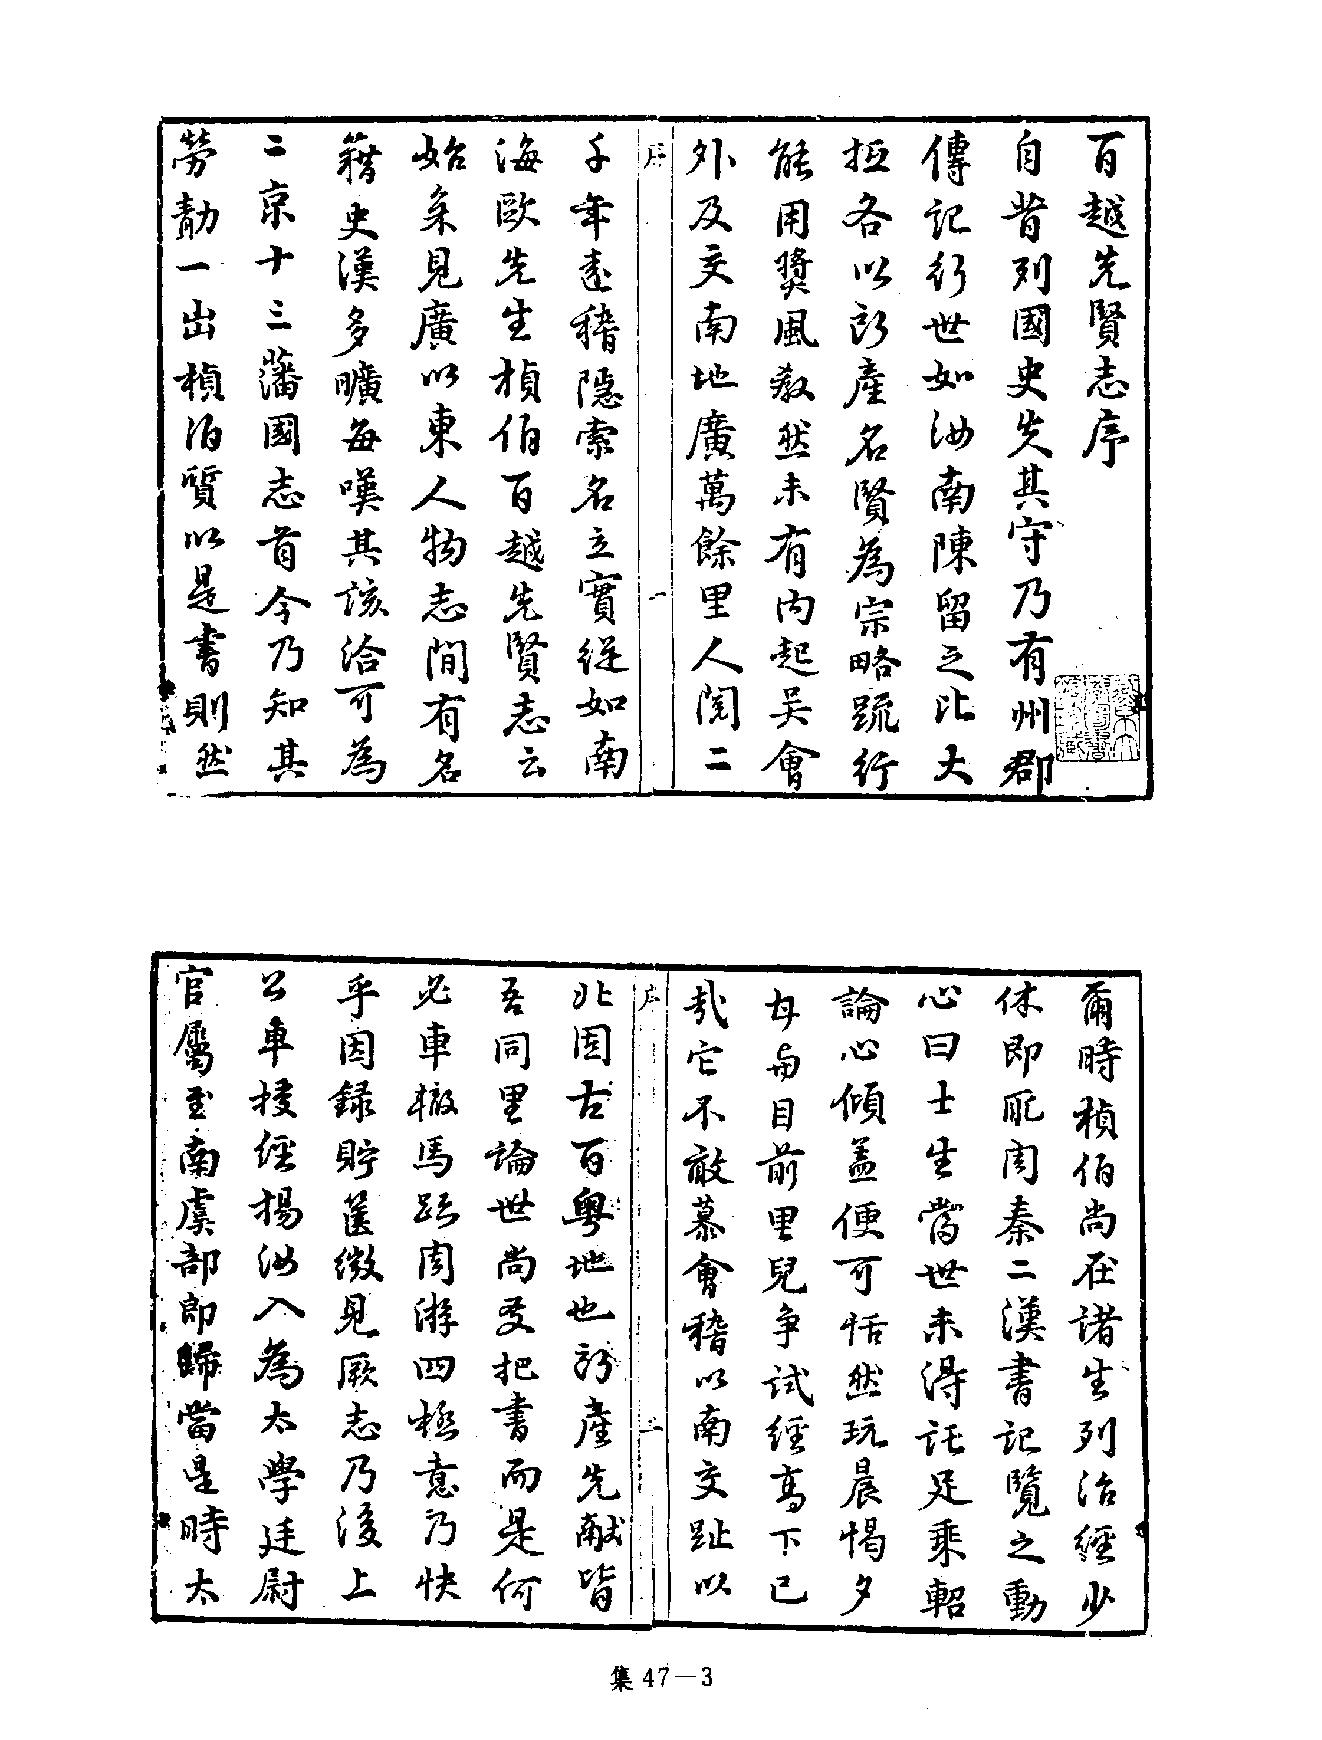 百越先賢志序
自昔列國史失其守乃有州郡
傳記行世如汝南陳留之比大
抵各以所產名賢為宗略疏行
能用獎風教然未有內起吳會
外及交南地廣萬餘里人閱二
序
一
千年遠稽隱索名立實綻如南
海歐先生楨伯百越先賢志云
始余見廣以東人物志間有名
籍史漢多曠每嘆其該洽可為
二京十三藩國志首今乃知其
勞勣一出楨伯質以是書則然
爾時楨伯尚在諸生列治經少
休即取周秦二漢書記覽之動
心曰士生當世未得託足乘軺
論心傾蓋便可恬然玩晨愒夕
毋與目前里兒爭試經高下已
哉它不敢慕會稽以南交趾以
序
二
北固古百粵地也所產先獻皆
吾同里論世尚友把書而是何
必車轍馬跡周游四極意乃快
乎因錄貯篋微見厥志乃後上
公車授經揚汝入為太學廷尉
官屬至南虞部郎歸當是時太
集 47—3